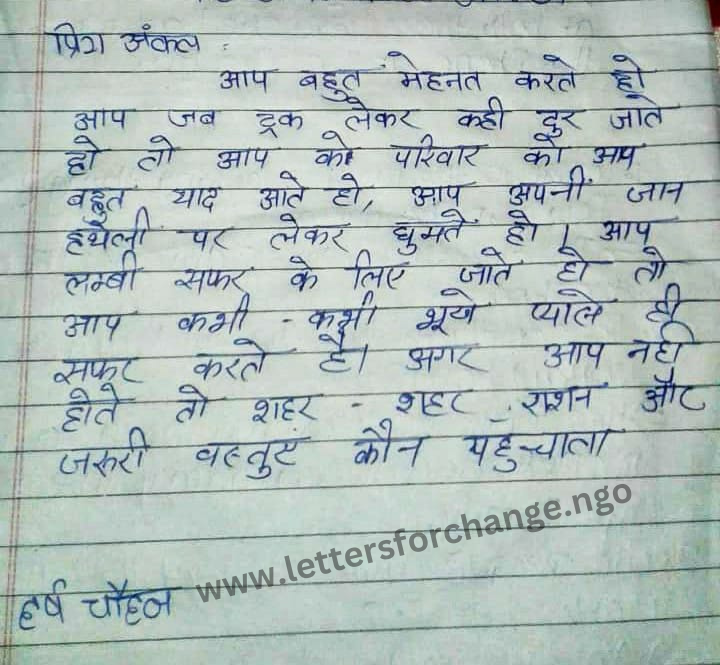 प्रिय अंकल :
आप बहुत मेहनत करते हो
आप जब ट्रक लेकर कही दुर जाते
हो तो आप को परिवार को आप
बहुत याद आते हो, आप अपनी जान
हथेली पर लेकर घुमते हो। आप
लम्बी सफर के लिए जाते हो तो
आप कभी - कभी भूखे प्यासे ही
सफर करते है। अगर आप नही
होते तो शहर - शहर राशन और
जरूरी वस्तुएं कौन पहुंचाता
www.lettersforchange.ngo
हर्ष चौहान